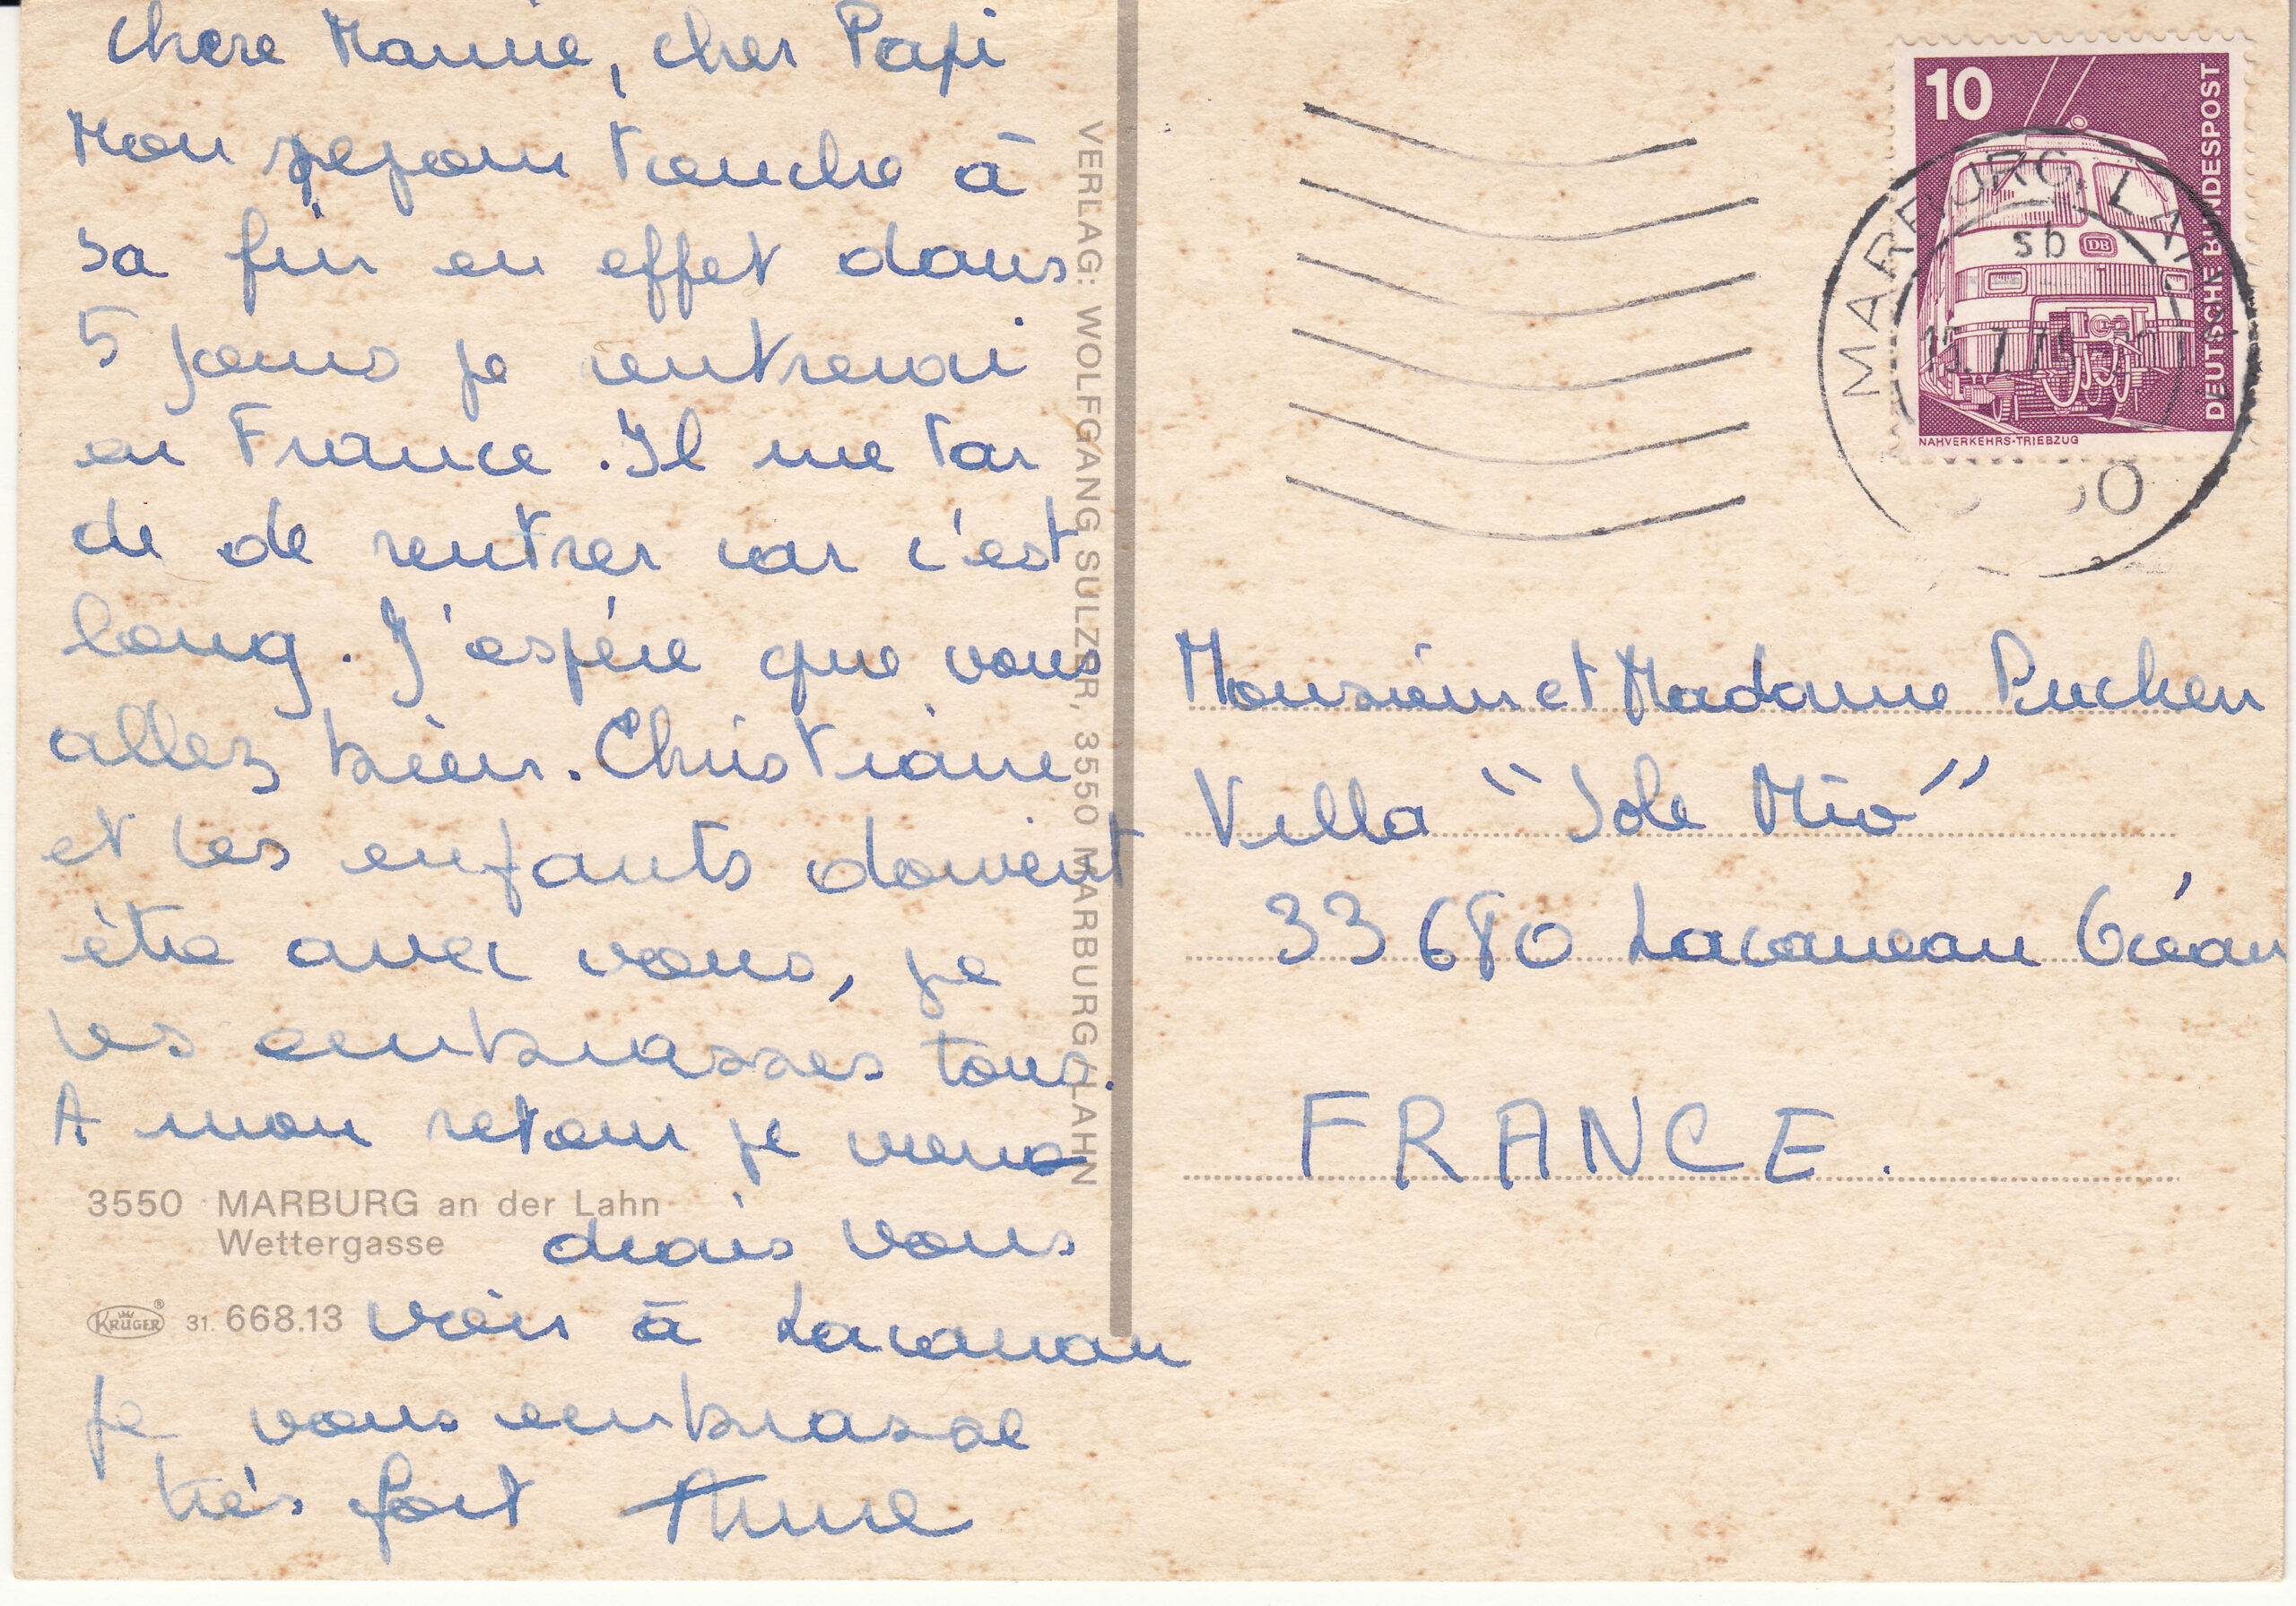 Chere Mamie, cher Papi
Mon sejour touche à
sa fin en effet dans
5 jours je rentrerai
en France. Il me tar
de de rentrer car c'est
long. J'espére que vous
allez bien. Christiane
et les enfants doivent
être avec vous, je
les embrasses tous.
A mon retour je viens
drais vous
voir à Lacanau
je vous embrasse
très fort Anne
3550 MARBURG an der Lahn
Wettergasse
KRÜGER ® 31. 668.13
VERLAG: WOLFGANG SULZER, 3550 MARBURG/LAHN
10
DEUTSCHE BUNDESPOST
DB
NAHVERKEHRS-TRIEBZUG
MARBURG, LA
sb
Monsieur et Madame
Villa "Sole Mio"
33680 Lacanau Océan
FRANCE.